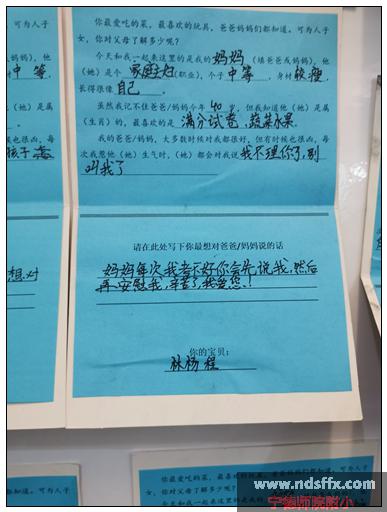 你最爱吃的菜，最喜欢的玩具，爸爸妈妈们都知道。可为人子
女，你对父母了解多少呢？
今天和我一起来这里的是我的妈妈（填爸爸或妈妈），他
（她）是个家庭妇（职业），个子中等，身材较瘦，
长得很像自己。
虽然我记不住爸爸/妈妈今年40岁，但我知道他（她）是属
（生肖）的，最喜欢的是满分试卷，蔬菜水果。
我的爸爸/妈妈，大多数时候对我都很好，但有时候也很凶，每
次我惹他（她）生气时，（她）都会对我说我不理你了，别
叫我了
请在此处写下你最想对爸爸/妈妈说的话
妈妈每次我考不好你会先说我，然后
再安慰我，辛苦了，我爱您！
你的宝贝：
林杨程
妈妈），他
中等，
）是属
也很凶，每
孩子
想对
可为人子
你最爱吃的菜，最喜欢的玩具，爸爸妈妈们都知道。可为人子
女，你对父母了解多少呢？
今天和我一起来这里的是我的
www.ndsffx.com
宁德师院附小